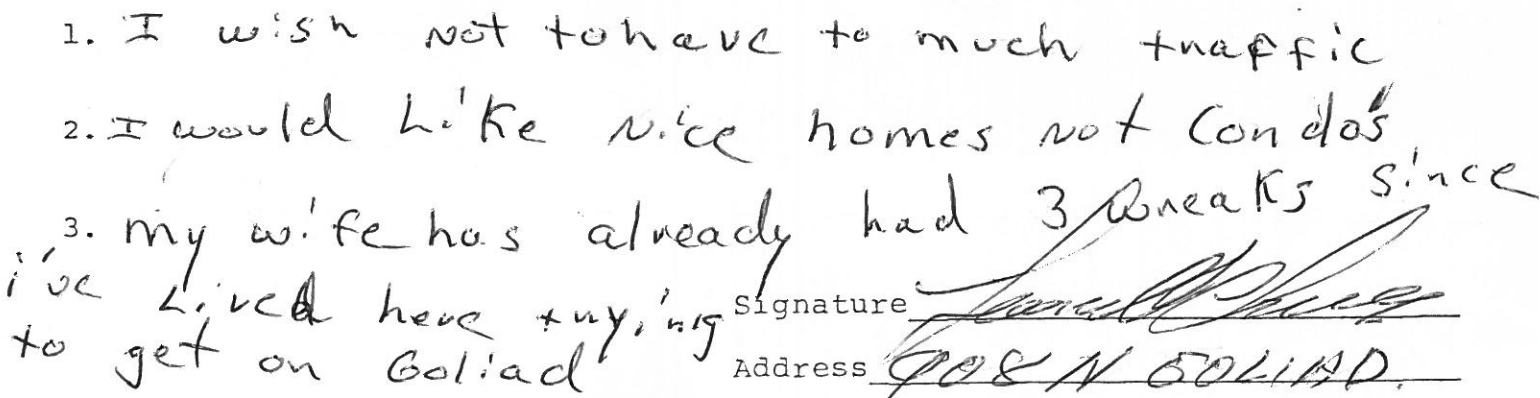 1. I wish not to have to much traffic
2. I would Like Nice homes not Condo's
3. my wife has already had 3 wreaks since
i've Lived here trying
to get on Goliad
Signature
Address 908 N GOLIAD.